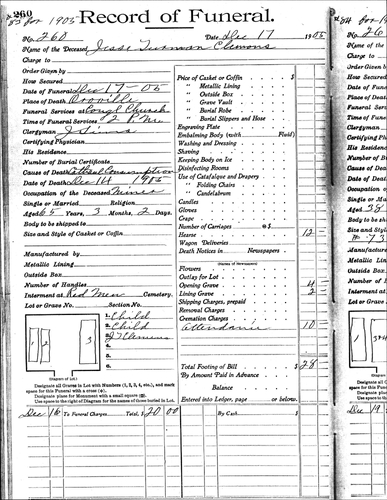 260
for 1905 Record of Funeral.
No. 260 Date Dec 17 1905
Name of the Deceased Jesse Truman Clemons
Charge to
Order Given by
How Secured
Date of Funeral Dec 17 - 05
Place of Death Oroville
Funeral Services at Congl Church
Time of Funeral Services 2 P M
Clergyman
Certifying Physician
His Residence
Number of Burial Certificate
Cause of Death Consumption
Date of Death Dec 14 1905
Occupation of the Deceased Miner
Single or Married Religion
Aged 65 Years, 3 Months, 2 Days.
Body to be shipped to
Size and Style of Casket or Coffin
Manufactured by
Metallic Lining
Outside Box
Number of Handles
Interment at Red Men Cemetery.
Lot or Grave No. Section No.
1. Child
2. Child
3. J T Clemons
4.
5.
6.
1 2 3
(Diagram of Lot.)
Designate all Graves in Lot with Numbers (1, 2, 3, 4, etc.), and mark
space for this Funeral with a cross
Designate place for Monument with a small square
Use space to the right of Diagram for the Names of Grave buried in Lot.
Price of Casket or Coffin $
" Metallic Lining
" Outside Box
" Grave Vault
" Burial Robe
" Burial Slippers and Hose
Engraving Plate
Embalming Body (with Fluid)
Washing and Dressing
Shaving
Keeping Body on Ice
Disinfecting Rooms
Use of Catafalque and Drapery
" Folding Chairs
" Candelabrum
Candles
Gloves
Crape
Number of Carriages @ $
Hearse 12
Wagon Deliveries
Death Notices in Newspapers
(Names of Newspapers)
Flowers
Outlay for Lot
Opening Grave 4
Lining Grave 2
Shipping Charges, prepaid
Removal Charges
Cremation Charges
Attendance 10
Total Footing of Bill $ 28
By Amount Paid in Advance
Balance
Entered into Ledger, page or below.
Dec 16 To Funeral Charges Total, $ 20 00 By Cash $